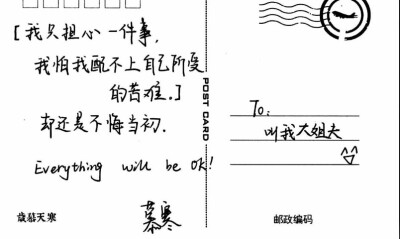 [我只担心一件事,
我怕我配不上自己所受
的苦难.]
却还是不悔当初.
Everything will be OK!
慕寒
歲暮天寒
POST CARD
To:
叫我大姐夫
邮政编码